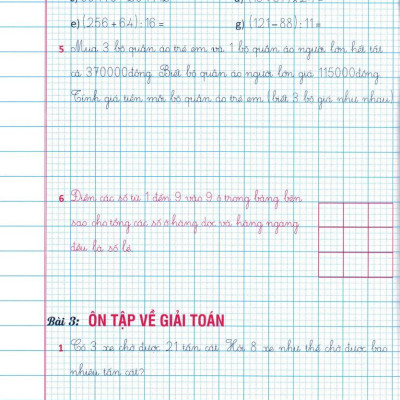 e) (256 + 64) : 16 =
g) (121 - 88) : 11 =
5 Mua 3 bộ quần áo trẻ em và 1 bộ quần áo người lớn hết tất
cả 370000 đồng. Biết bộ quần áo người lớn giá 115000 đồng.
Tính giá tiền mỗi bộ quần áo trẻ em (biết 3 bộ giá như nhau)
6 Điền các số từ 1 đến 9 vào 9 ô trong bảng bên
sao cho tổng các số ở hàng dọc và hàng ngang
đều là số lẻ.
Bài 3: ÔN TẬP VỀ GIẢI TOÁN
1 Có 3 xe chở được 21 tấn cát. Hỏi 8 xe như thế chở được bao
nhiêu tấn cát?